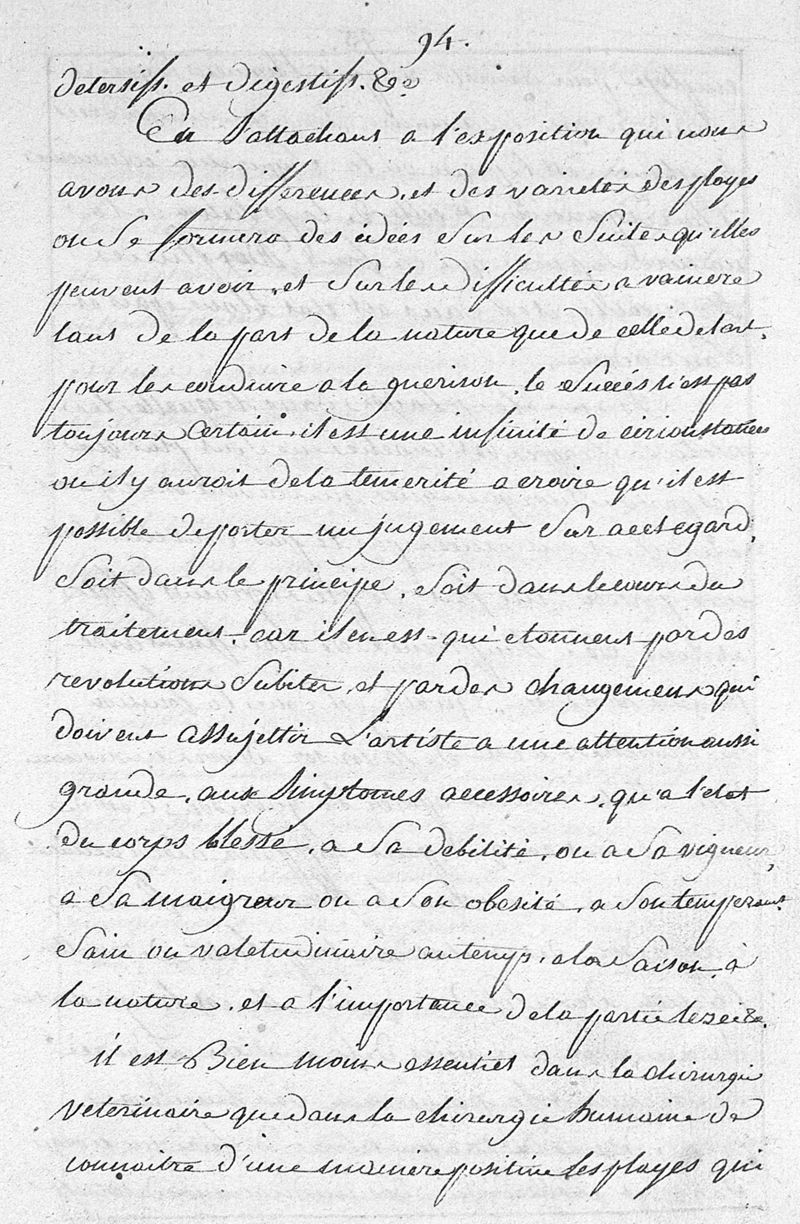 94.
detersifs. et digestifs. &c.
En s'attachant a l'exposition qui nous
avons des differences, et des varietés des playes
on se formera des idées sur les suites qu'elles
peuvent avoir, et sur les difficultés a vaincre
tant de la part de la nature que de celle de l'art.
pour les conduire a la guerison, le succés n'est pas
toujours certain, il est une infinité de circonstances
ou il y auroit de la temerité a croire qu'il est
possible de porter un jugement sur a cet egard,
soit dans le principe, soit dans le cours du
traitement. car il en est qui etonnent par des
revolutions subites, et par des changemens qui
doivent assujettir l'artiste a une attention aussi
grande, aux simptomes accessoires, qu'a l'etat
du corps blessé, a sa debilité, ou a sa vigueur,
a sa maigreur ou a son obésité, a son temperamt.
sain ou valetudinaire au temps, a la saison, à
la nature, et a l'importance de la partie lezée &c.
il est Bien moins essentiel dans la chirurgi
veterinaire que dans la chirurgie humaine de
connaitre d'une maniere positive les playes qui